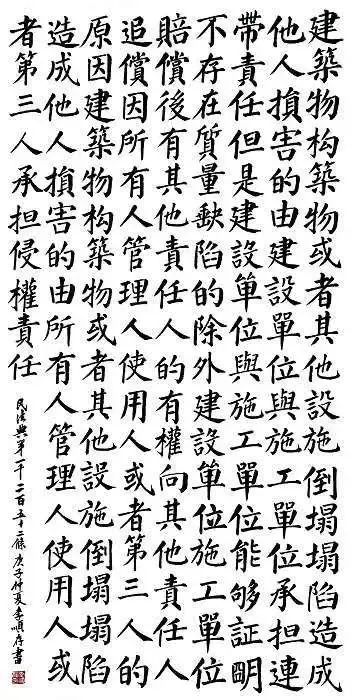 建築物构築物或者其他設施倒塌塌陷造成
他人損害的由建設單位與施工單位承担連
帶責任但是建設單位與施工單位能够証明
不存在質量缺陷的除外建設單位施工單位
賠償後有其他責任人的有權向其他責任人
追償因所有人管理人使用人或者第三人的
原因建築物构築物或者其他設施倒塌塌陷
造成他人損害的由所有人管理人使用人或
者第三人承担侵權責任
民法典第一千二百五十二條 庚子仲夏李順存書